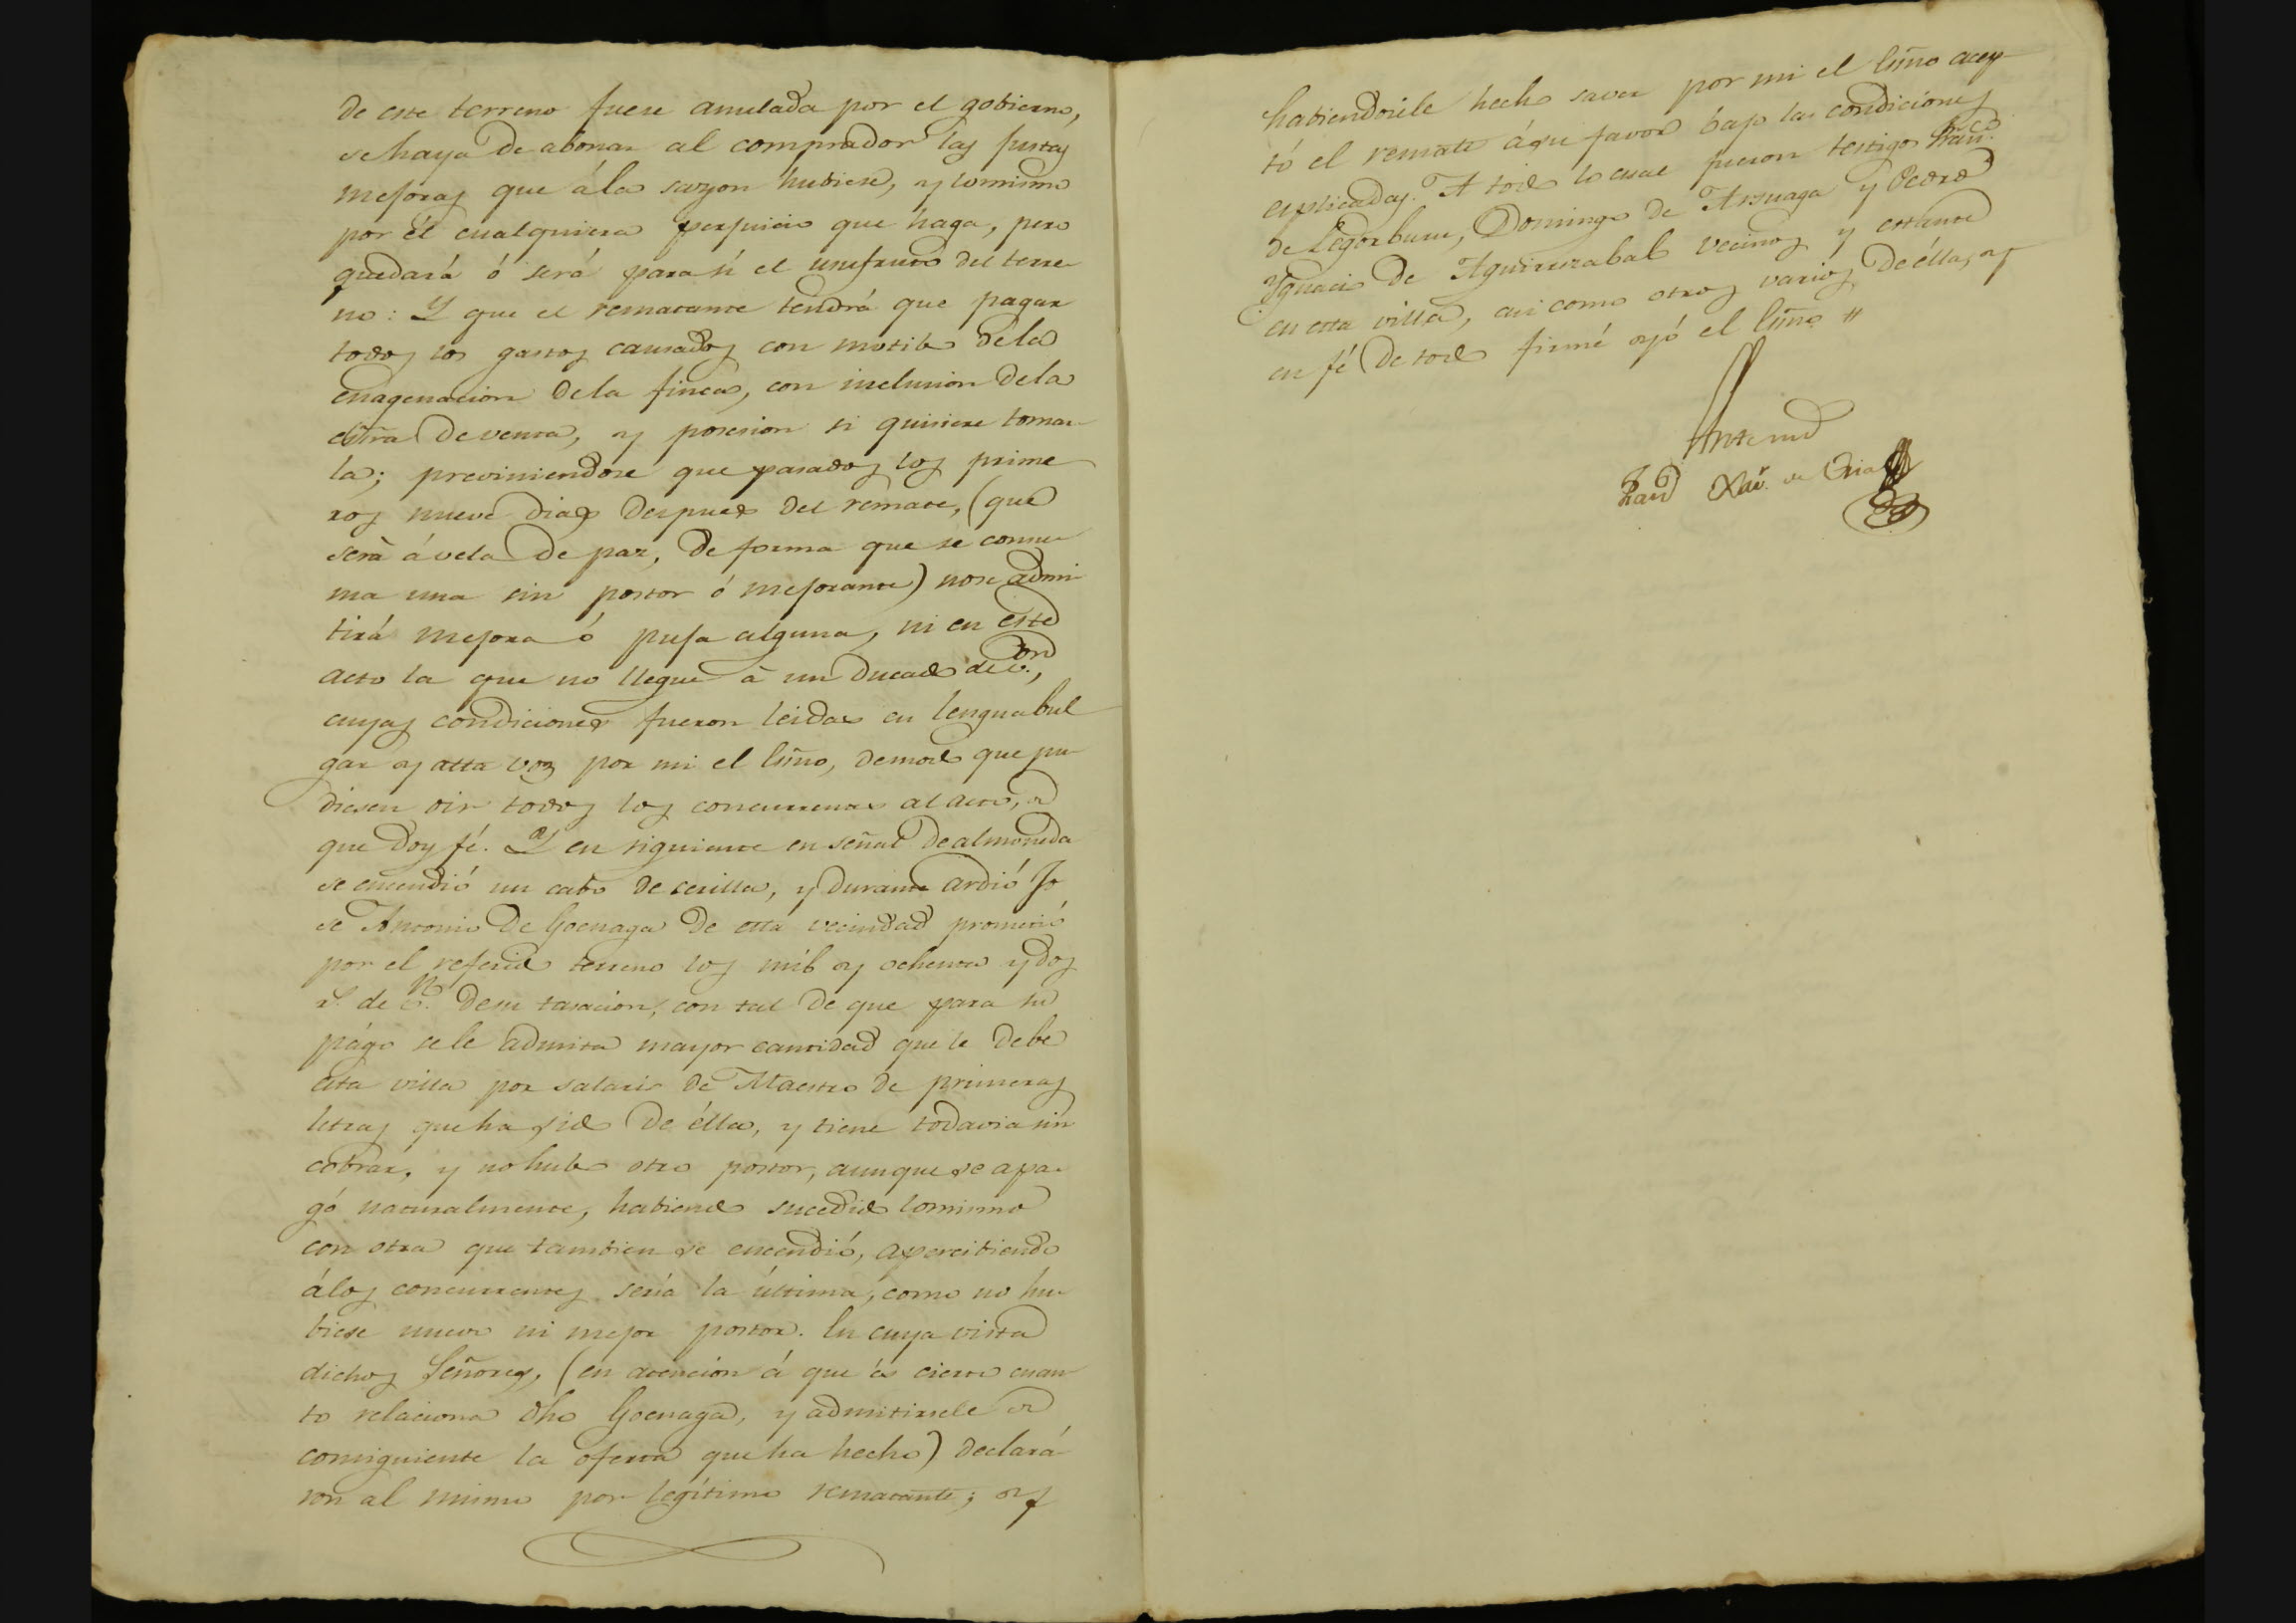 de este terreno fuere anulada por el gobierno,
se haya de abonar al comprador las justas
mejoras que á la sazon hubiere, y lo mismo
por él cualquiera perjuicio que haga, pero
quedará ó será para sí el usufruto del terre-
no: Y que el rematante tendrá que pagar
todos los gastos causados con motibo de la
enagenacion de la finca, con inclusion de la
estra de venta, y posesion si quisiere tomar-
la; previniendose que pasados los prime-
ros nueve dias despues del remate, (que
será á vela de par, de forma que se consu-
ma una sin postor ó mejorante) no se admi-
tirá mejora ó puja alguna, ni en este
acto la que no llegue à un ducado de von,
cuyas condiciones fueron leidas en lengua bul-
gar y alta voz por mi el Essno, de modo que pu-
diesen oir todos los concurrentes al acto, de
que doy fé. Y en siguiente en señal de almoneda
se encendió un cabo de cerilla, y durante ardió Jo-
se Antonio de Goenaga de esta vecindad prometió
por el referido terreno los mil y ochenta y dos
rs. de von. de su tasacion, con tal de que para su
págo se le admita mayor cantidad que le debe
esta villa por salario de Maestro de primeras
letras que ha sido de élla, y tiene todavia sin
cobrar, y no hubo otro postor, aunque se apa-
gó naturalmente, habiendo sucedido lo mismo
con otra que tambien se encendió, apercibiendo
á los concurrentes sería la última, como no hu-
biese nueva ni mejor postor. En cuya vista
dichos Señores, (en atencion á que és cierto cuan-
to relaciona dho Goenaga, y admitirsele de
consiguiente la oferta que ha hecho) declará-
ron al mismo por legítimo rematante; y
habiendosele hecho saver por mi el Essno acep-
tó el remate á su favor bájo las condiciones
esplicadas. A todo lo cual fueron testigos Franco.
de Legorburu, Domingo de Arsuaga y Pedro
Ygnacio de Aguirrezabal vecinos y estante
en esta villa, asi como otros varios de élla, y
en fé de todo firmé yó el Essno //
Ante mi
Xavr. de